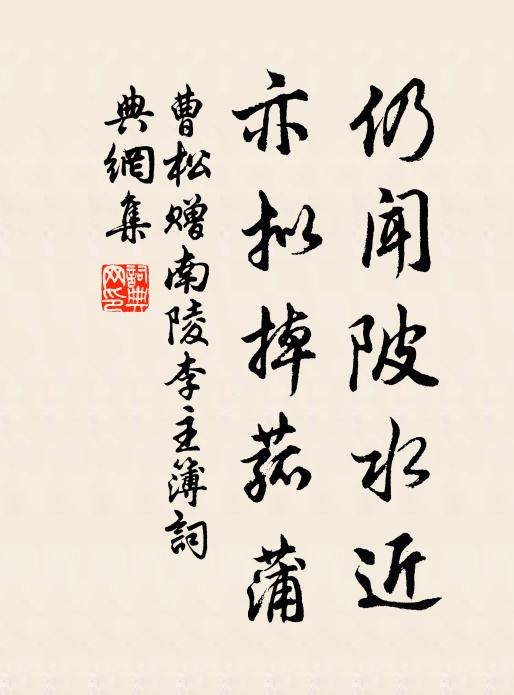 仍闻陂水近
亦拟掉菰蒲
曹松赠南陵李主簿詞
典網集
詞典网印